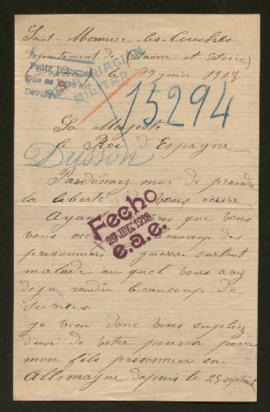 Saint-Maurice-les-Couches
Département de (Saône et Loire)
17 juin 1918
15294
Sa Majesté
le Roi d'Espagne
Dusson
Pardonnez moi de prendre
la liberté de vous écrire
Ayant que vous
vous beaucoup des
prisonniers guerre surtout
malade au quel vous avez
déja rendu beaucoup de
services.
je vien donc vous supliez
de votre pouvoir pour
mon fils prisonnier en
Allemagne depuis le 25 septemb
Fecho
29 JUL. 1918
e.a.e.